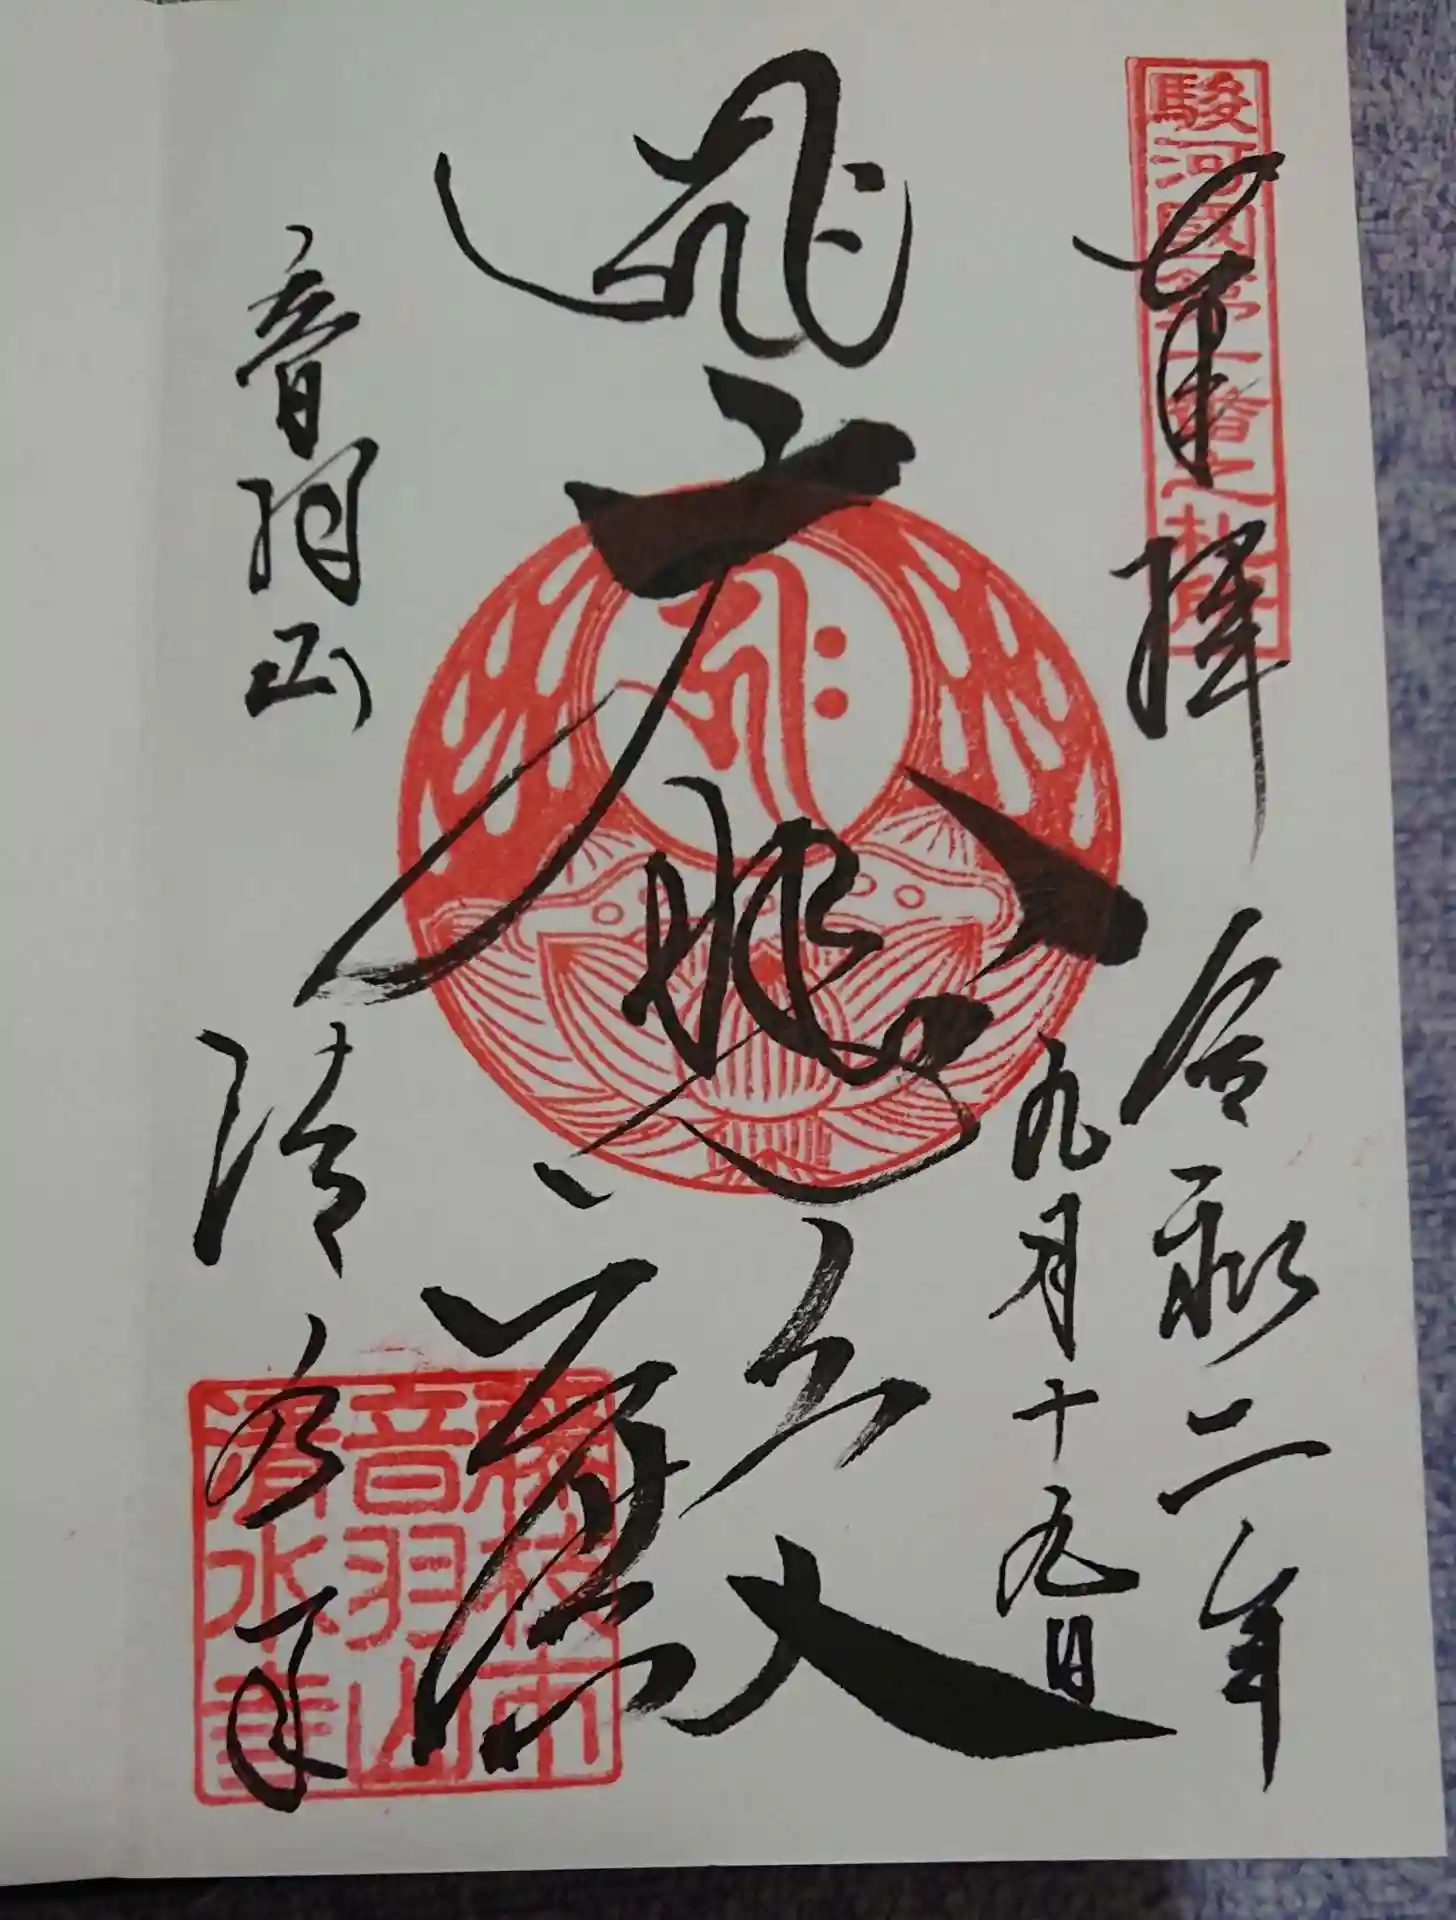 駿河國第一番之札所
奉拝
令和二年
九月十九日
大悲殿
音羽山
清水寺
藤枝市
音羽山
清水寺